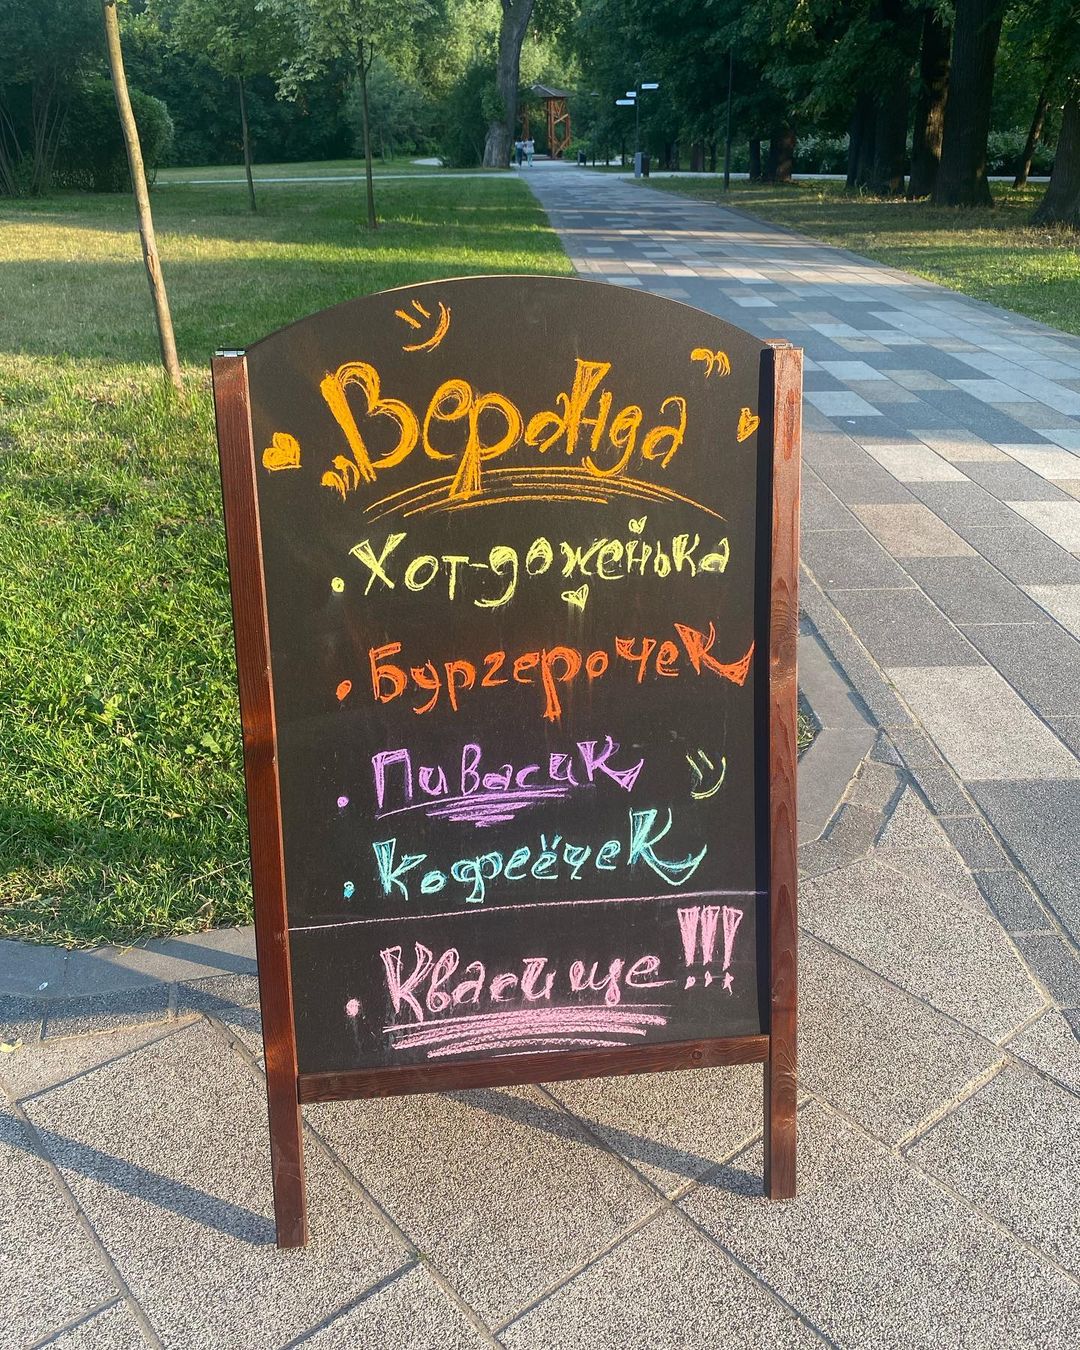 „Веранда”
• Хот-доженька
• Бургерочек
• Пивасик
• Кофеёчек
• Квасище!!!